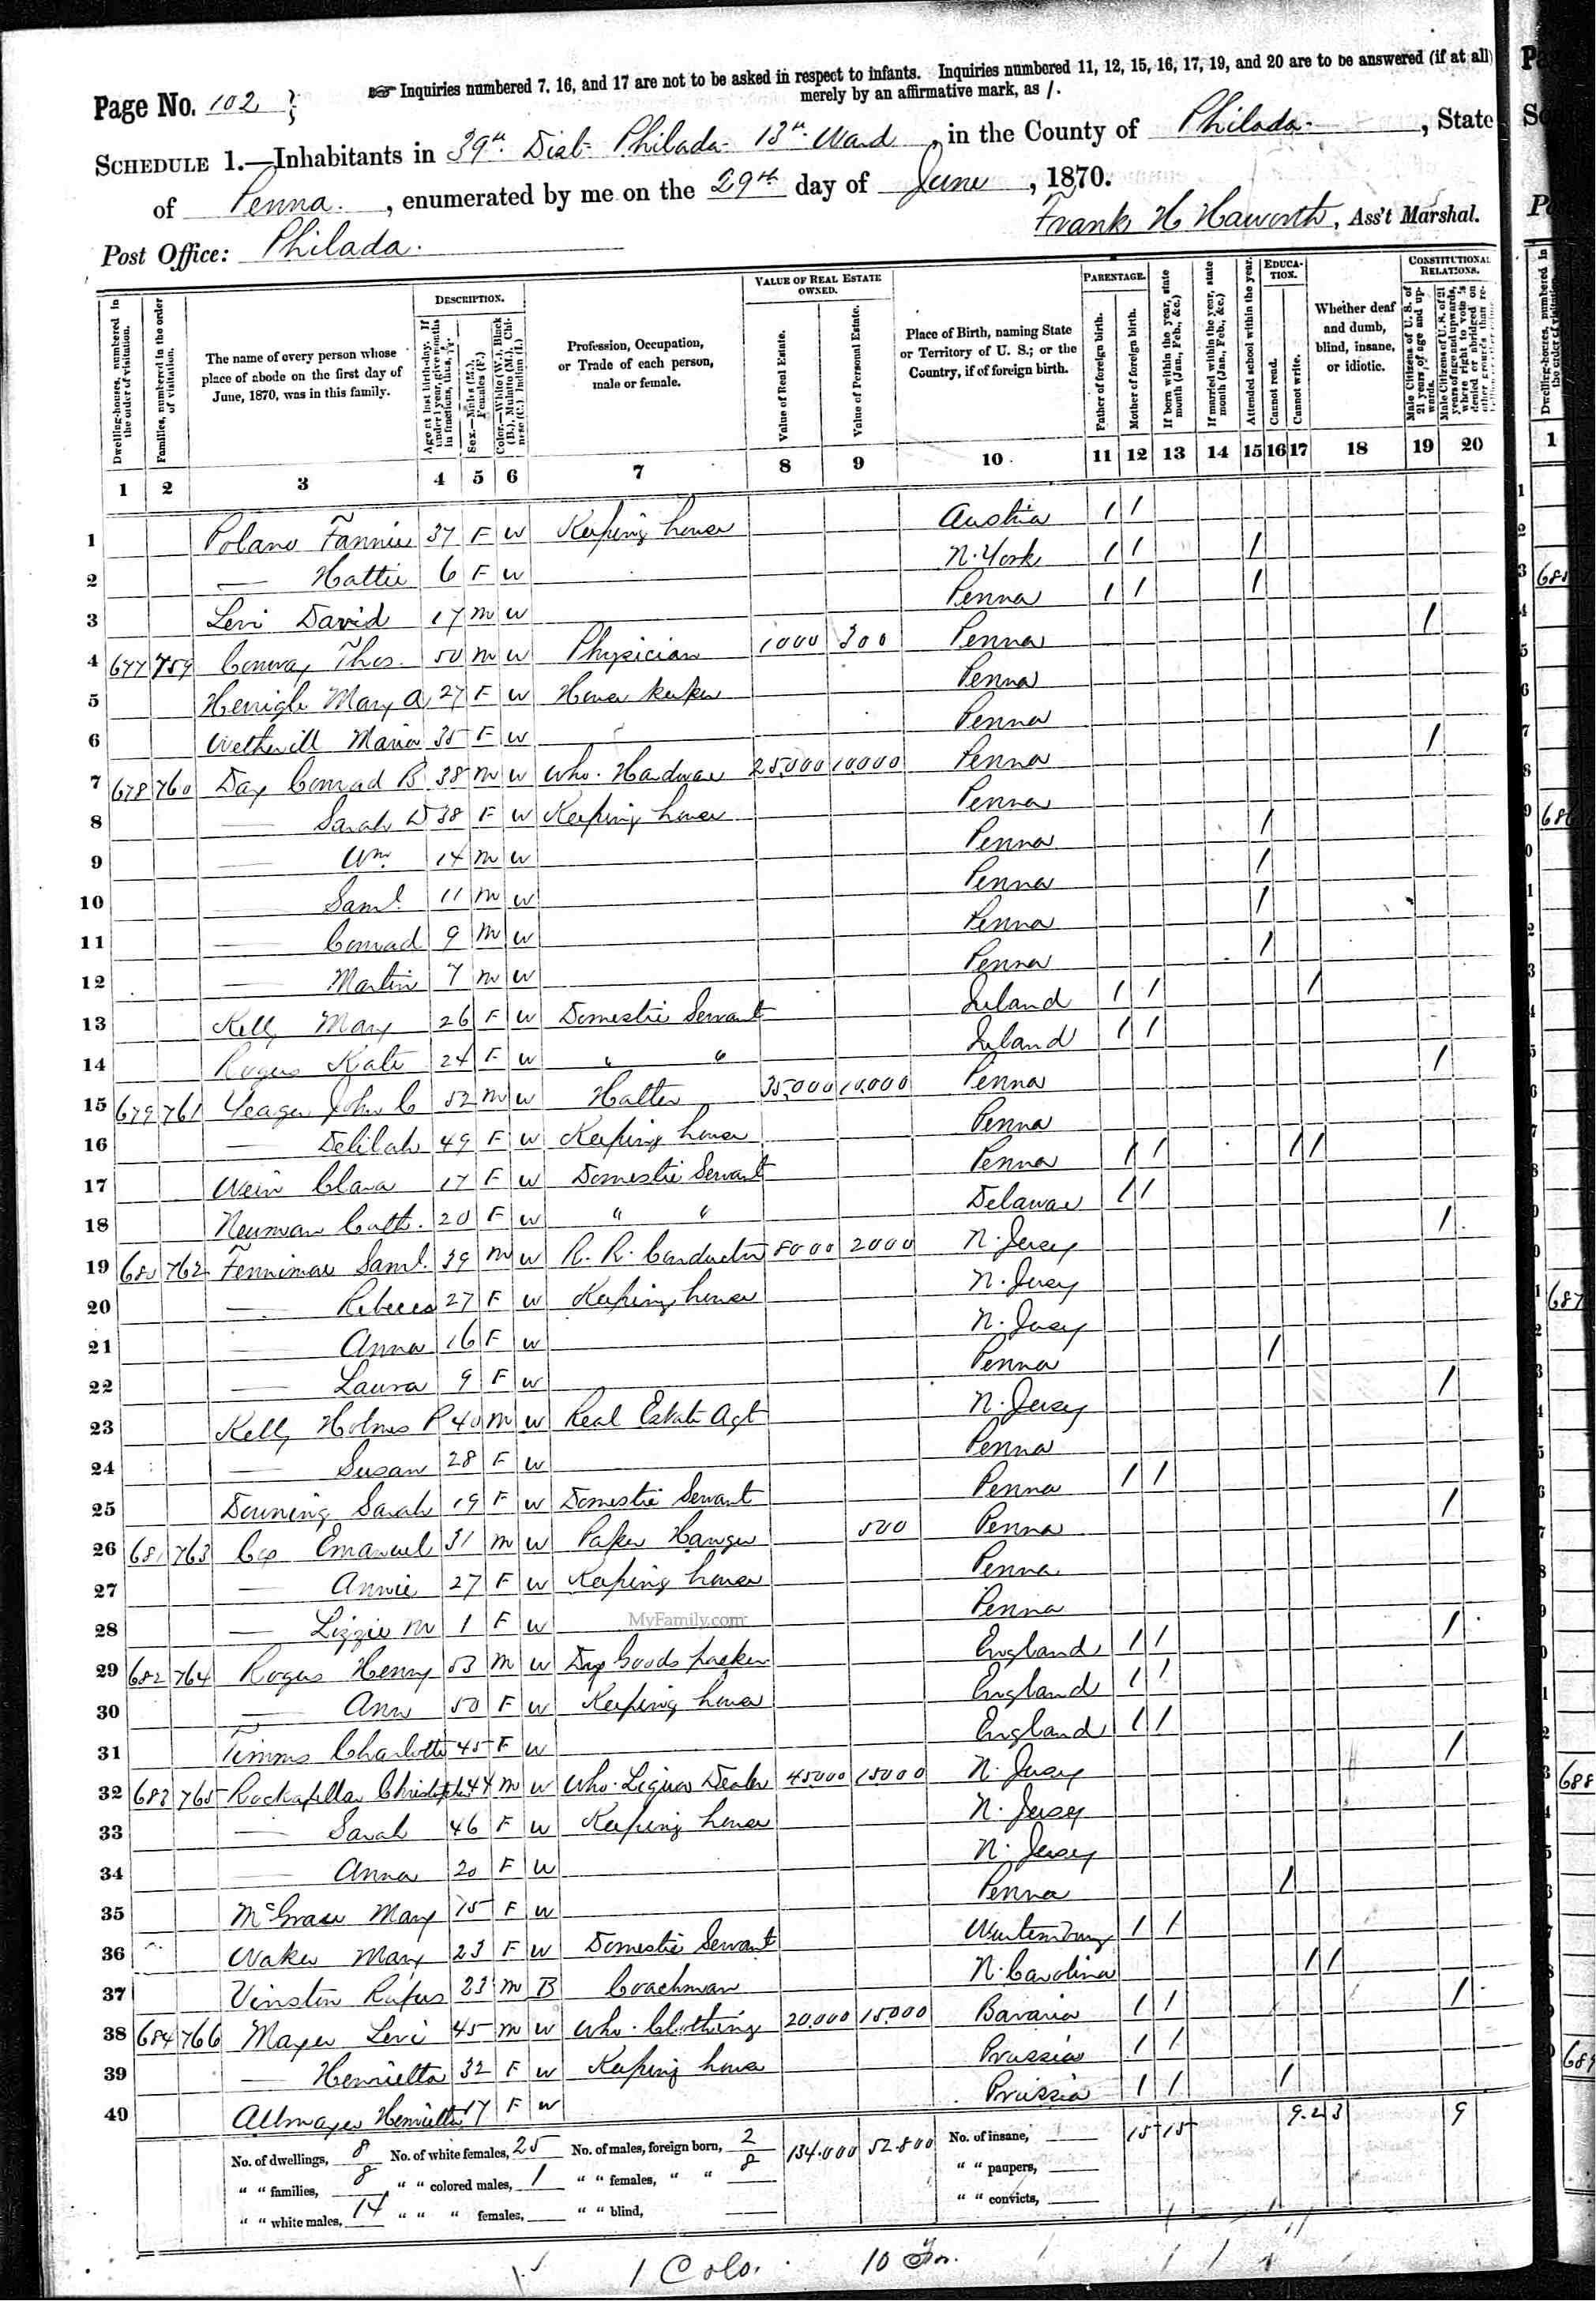 Page No. 102
☞ Inquiries numbered 7, 16, and 17 are not to be asked in respect to infants. Inquiries numbered 11, 12, 15, 16, 17, 19, and 20 are to be answered (if at all)
merely by an affirmative mark, as /.
SCHEDULE 1.—Inhabitants in 39th Dist Philada 13th Ward, in the County of Philada, State
of Penna., enumerated by me on the 29th day of June, 1870.
Post Office: Philada. Frank H Haworth, Ass't Marshal.
Dwelling-houses, numbered in the order of visitation.
Families, numbered in the order of visitation.
The name of every person whose place of abode on the first day of June, 1870, was in this family.
DESCRIPTION.
Sex.—Males (M.), Females (F.)
Color.—White (W.), Black (B.), Mulatto (M.), Chinese (C.), Indian (I.)
Profession, Occupation, or Trade of each person, male or female.
VALUE OF REAL ESTATE OWNED.
Value of Real Estate.
Value of Personal Estate.
Place of Birth, naming State or Territory of U. S.; or the Country, if of foreign birth.
PARENTAGE.
Father of foreign birth.
Mother of foreign birth.
If born within the year, state month (Jan., Feb., &c.)
If married within the year, state month (Jan., Feb., &c.)
Attended school within the year.
EDUCATION.
Cannot read.
Cannot write.
Whether deaf and dumb, blind, insane, or idiotic.
CONSTITUTIONAL RELATIONS.
Male Citizens of U. S. of 21 years of age and upwards.
1 2 3 4 5 6 7 8 9 10 11 12 13 14 15 16 17 18 19 20
1 Polano Fannie 37 F W Keeping house Austria / /
2 — Hattie 6 F W N. York / / /
3 Levi David 17 M W Penna / / /
4 677 759 Conway Thos. 50 M W Physician 1000 300 Penna /
5 Mary A 27 F W House keeper Penna
6 Wetherill Maria 35 F W Penna
7 678 760 Day Conrad B 38 M W Who. Hardware 25,000 10,000 Penna /
8 — Sarah D 38 F W Keeping house Penna
9 — Wm. 14 M W Penna /
10 — Saml. 11 M W Penna /
11 — Conrad 9 M W Penna /
12 — Martin 7 M W Penna /
13 Kelly Mary 26 F W Domestic Servant Ireland / / /
14 Rogers Kate 24 F W " " Ireland / /
15 679 761 Yeager John C 52 M W Hatter 35,000 10,000 Penna /
16 — Delilah 49 F W Keeping house Penna
17 Wein Clara 17 F W Domestic Servant Penna / / / /
18 Neuman Cath. 20 F W " " Delaware / /
19 680 762 Fennimore Saml. 39 M W R. R. Conductor 8000 2000 N. Jersey /
20 — Rebecca 27 F W Keeping house N. Jersey
21 — Anna 16 F W N. Jersey
22 — Laura 9 F W Penna /
23 Kelly Holmes P 40 M W Real Estate Agt N. Jersey /
24 — Susan 28 F W Penna
25 Downing Sarah 19 F W Domestic Servant Penna / /
26 681 763 Cox Emanuel 31 M W Paper Hanger 500 Penna /
27 — Annie 27 F W Keeping house Penna
28 — Lizzie M 1 F W Penna
MyFamily.com
29 682 764 Rogers Henry 53 M W Dry Goods packer England / / /
30 — Ann 50 F W Keeping house England / /
31 Timms Charlotte 45 F W England / /
32 683 765 Rockafellar Christopher 44 M W Who. Liquor Dealer 45000 15000 N. Jersey /
33 — Sarah 46 F W Keeping house N. Jersey
34 — Anna 20 F W N. Jersey
35 McGraw Mary 15 F W Penna /
36 Waker Mary 23 F W Domestic Servant Wurtemburg / /
37 Vinston Rufus 23 M B Coachman N. Carolina / /
38 684 766 Mayer Levi 45 M W Who. Clothing 20,000 15,000 Bavaria / / /
39 — Henrietta 32 F W Keeping house Prussia / /
40 Allmayer Henrietta 17 F W Prussia / / /
No. of dwellings, 8 No. of white females, 25 No. of males, foreign born, 2 134.000 52.800 No. of insane, 15 15 9 2 3 9
" " families, 8 " " colored males, 1 " " females, " " 8 " " paupers,
" " white males, 14 " " " females, " " blind, " " convicts,
1 Colo. 10 Fr.